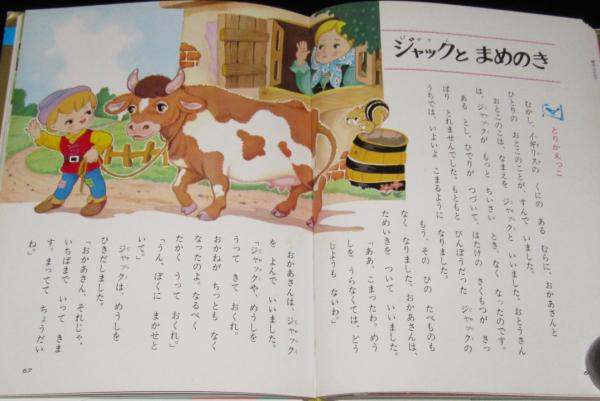 ジャックと まめのき
とりかえっこ
むかし、イギリスの くにの ある むらに、おかあさんと
ひとりの おとこのこが、すんで いました。
おとこのこは、なまえを ジャックと いいました。おとうさん
は、ジャックが もっと ちいさい とき、なく なったのです。
ある とし、ひでりが つづいて、はたけの さくもつが さっ
ぱり とれませんでした。もともと びんぼうだった ジャックの
うちでは、いよいよ こまるように なりました。
もう、その ひの たべものも
なく なりました。おかあさんは、
ためいきを ついて いいました。
「ああ、こまったわ。めう
しを うらなくては、どう
しようも ないわ。」
おかあさんは、ジャック
を よんで いいました。
「ジャックや、めうしを
うって きて おくれ。
おかねが ちっとも なく
なったのよ。なるべく
たかく うって おくれ。」
「うん、ぼくに まかせと
いて。」
ジャックは、めうしを
ひきだしました。
「おかあさん、それじゃ、
いちばまで いって きま
す。まってて ちょうだい
ね。」
67